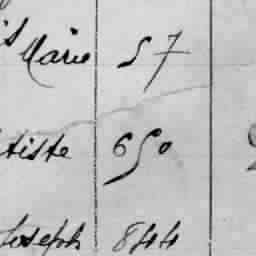 Marie 57
tiste 650
Joseph 844